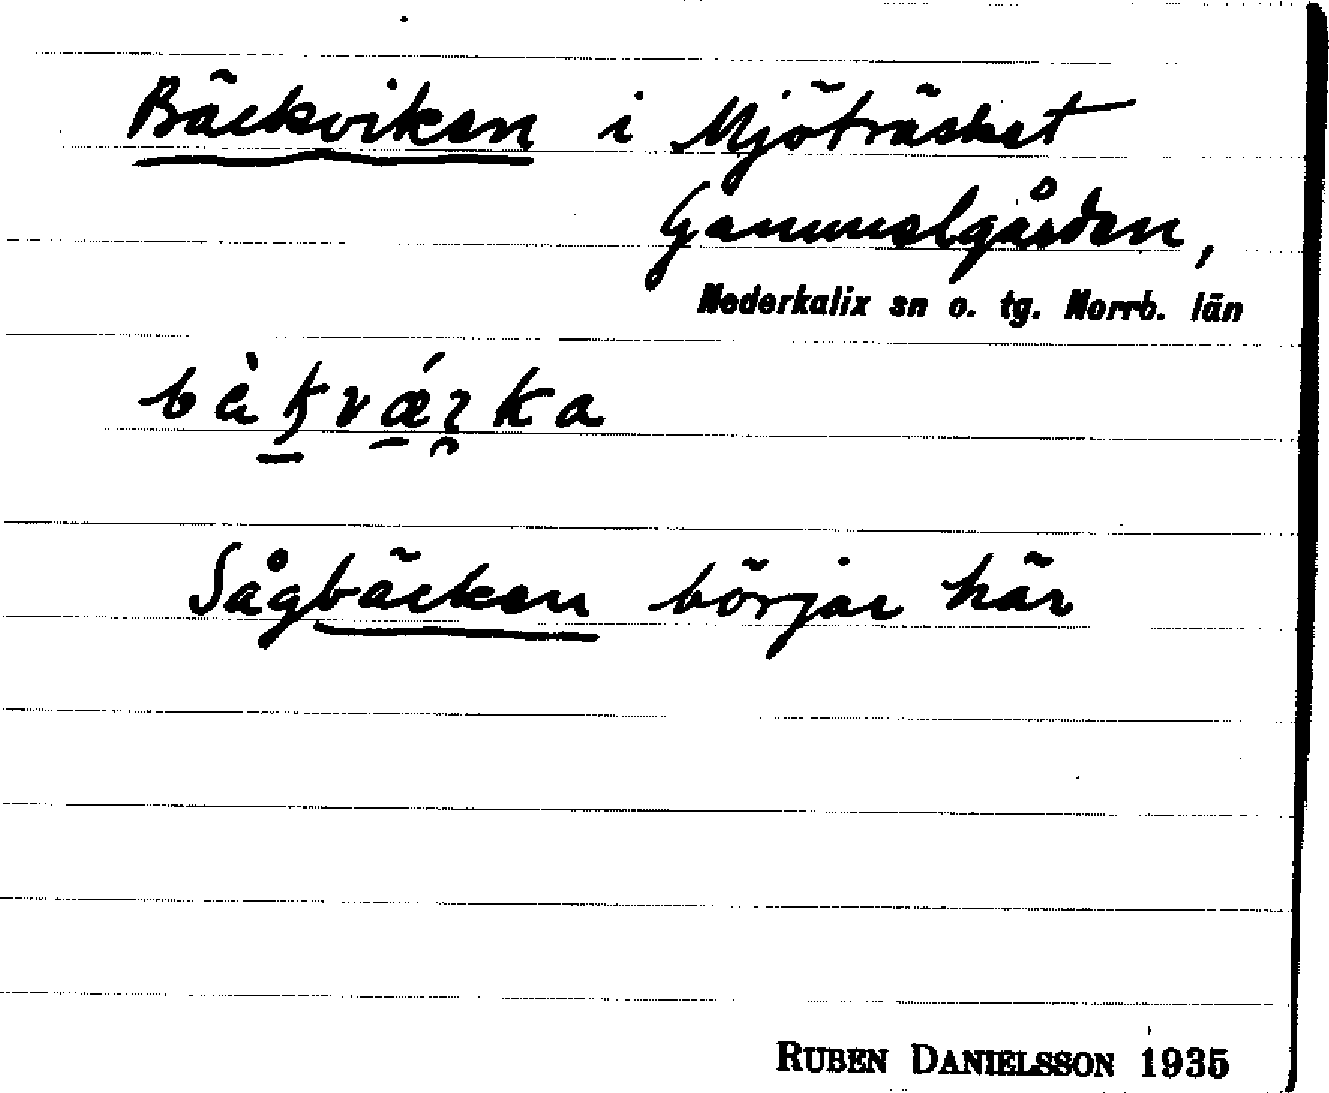 Bäckviken i Mjöträsket
Gammelgården,
Nederkalix sn o. tg. Norrb. län
Sågbäcken börjar här
RUBEN DANIELSSON 1935